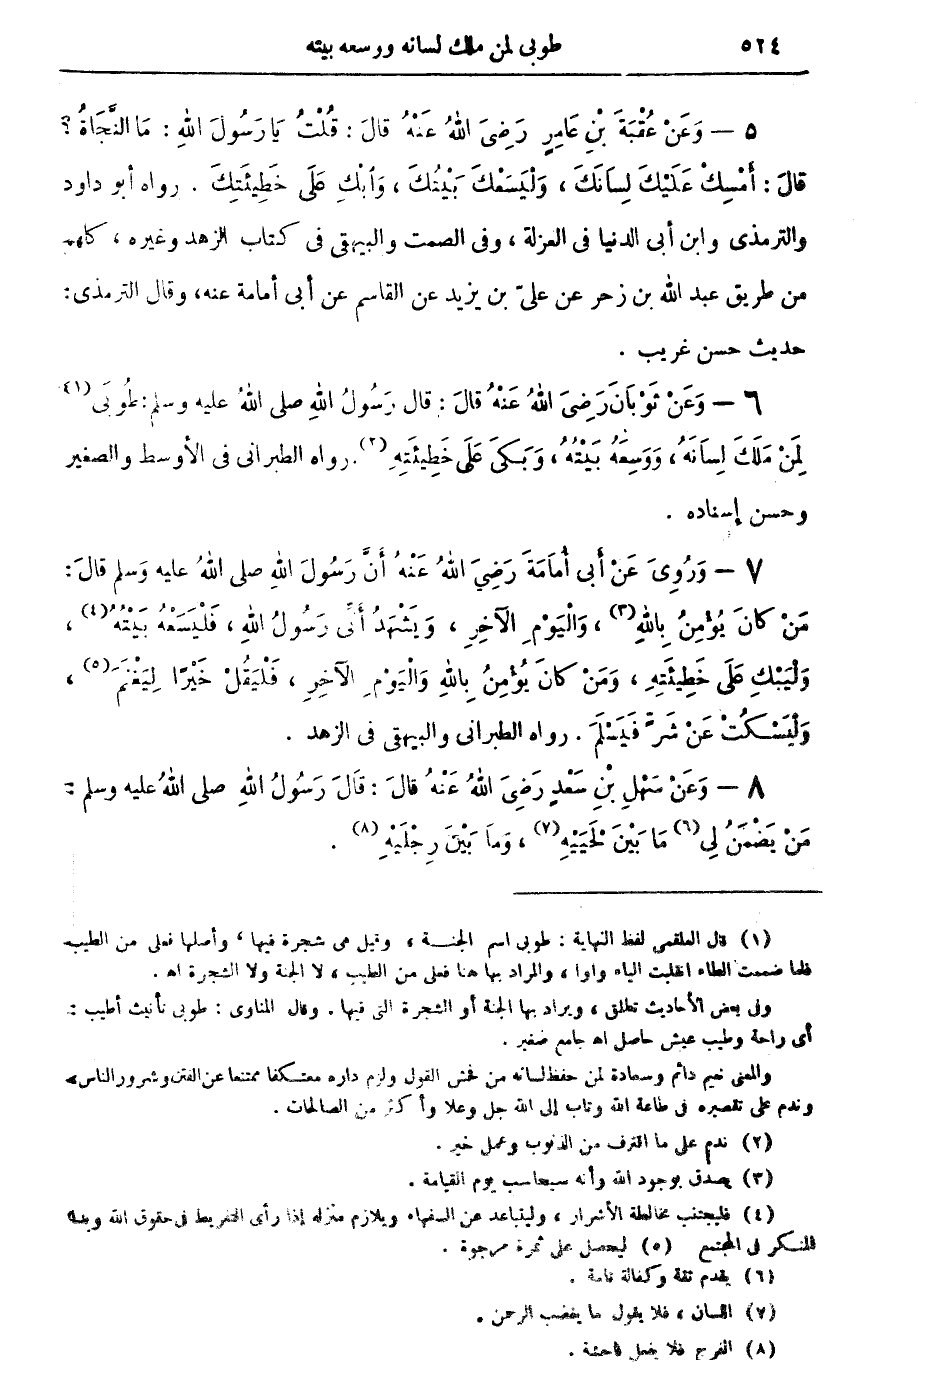 ٥٢٤ طوبى لمن ملك لسانه ووسعه بيته
٥ — وَعَنْ عُقْبَةَ بْنِ عَامِرٍ رَضِىَ اللهُ عَنْهُ قالَ : قُلْتُ يَا رَسُولَ اللهِ : مَا النَّجَاةُ ؟
قالَ : أَمْسِكْ عَلَيْكَ لِسَانَكَ ، وَلْيَسَعْكَ بَيْتُكَ ، وَابْكِ عَلَى خَطِيئَتِكَ . رواه أبو داود
والترمذى وابن أبى الدنيا فى العزلة ، وفى الصمت والبيهقى فى كتاب الزهد وغيره ، كلهم
من طريق عبد الله بن زحر عن علىّ بن يزيد عن القاسم عن أبى أمامة عنه، وقال الترمذى:
حديث حسن غريب .
٦ — وَعَنْ ثَوْبَانَ رَضِىَ اللهُ عَنْهُ قالَ : قال رَسُولُ اللهِ صلى اللهُ عليه وسلم: طُوبَى (١)
لِمَنْ مَلَكَ لِسَانَهُ ، وَوَسِعَهُ بَيْتُهُ ، وَبَكَى عَلَى خَطِيئَتِهِ (٢). رواه الطبرانى فى الأوسط والصغير
وحسن إسناده .
٧ — وَرُوِىَ عَنْ أَبى أُمَامَةَ رَضِيَ اللهُ عَنْهُ أَنَّ رَسُولَ اللهِ صلى اللهُ عليه وَسلم قالَ :
مَنْ كانَ يُؤْمِنُ بِاللهِ (٣) ، وَالْيَوْمِ الْآخِرِ ، وَيَشْهَدُ أَنِّى رَسُولُ اللهِ ، فَلْيَسَعْهُ بَيْتُهُ (٤) ،
وَلْيَبْكِ عَلَى خَطِيئَتِهِ ، وَمَنْ كانَ يُؤْمِنُ بِاللهِ وَالْيَوْمِ الآخِرِ ، فَلْيَقُلْ خَيْرًا لِيَغْنَمَ (٥) ،
وَلْيَسْكُتْ عَنْ شَرٍّ فَيَسْلَمَ . رواه الطبرانى والبيهقى فى الزهد .
٨ — وَعَنْ سَهْلِ بْنِ سَعْدٍ رَضِىَ اللهُ عَنْهُ قالَ : قَالَ رَسُولُ اللهِ صلى اللهُ عليه وسلم :
مَنْ يَضْمَنُ لِى (٦) مَا بَيْنَ لَحْيَيْهِ (٧) ، وَمَا بَيْنَ رِجْلَيْهِ (٨) .
(١) قال العلقمى لفظ النهاية : طوبى اسم الجنـة ، وقيل هى شجرة فيها ، وأصلها فعلى من الطيب
فلما ضممت الطاء انقلبت الياء واوا ، والمراد بها هنا فعلى من الطيب ، لا الجنة ولا الشجرة اهـ .
وفى بعض الأحاديث تطلق ، ويراد بها الجنة أو الشجرة التى فيها . وقال المناوى : طوبى تأنيث أطيب :
أى راحة وطيب عيش حاصل اهـ جامع صغير .
والمعنى نعيم دائم وسعادة لمن حفظ لسانه من فحش القول ولزم داره معتـكفا ممتنعا عن الفتن وشرور الناس
وندم على تقصيره فى طاعة الله وتاب إلى الله جل وعلا وأكثر من الصالحات .
(٢) ندم على ما اقترف من الذنوب وعمل خير .
(٣) يصدق بوجود الله وأنه سيحاسب يوم القيامة .
(٤) فليجتنب مخالطة الأشرار ، وليتباعد عن السفهاء ويلازم منزله إذا رأى التفريط فى حقوق الله
المنـكر فى المجتمع (٥) ليحصل على ثمرة مرجوة .
(٦) يقدم ثقة وكفالة تامة .
(٧) اللسان ، فلا يقول ما يغضب الرحمن .
(٨) الفرج فلا يفعل فاحشة .